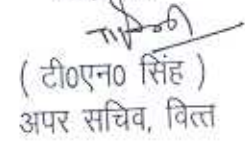 ( टी०एन० सिंह )
अपर सचिव, वित्त